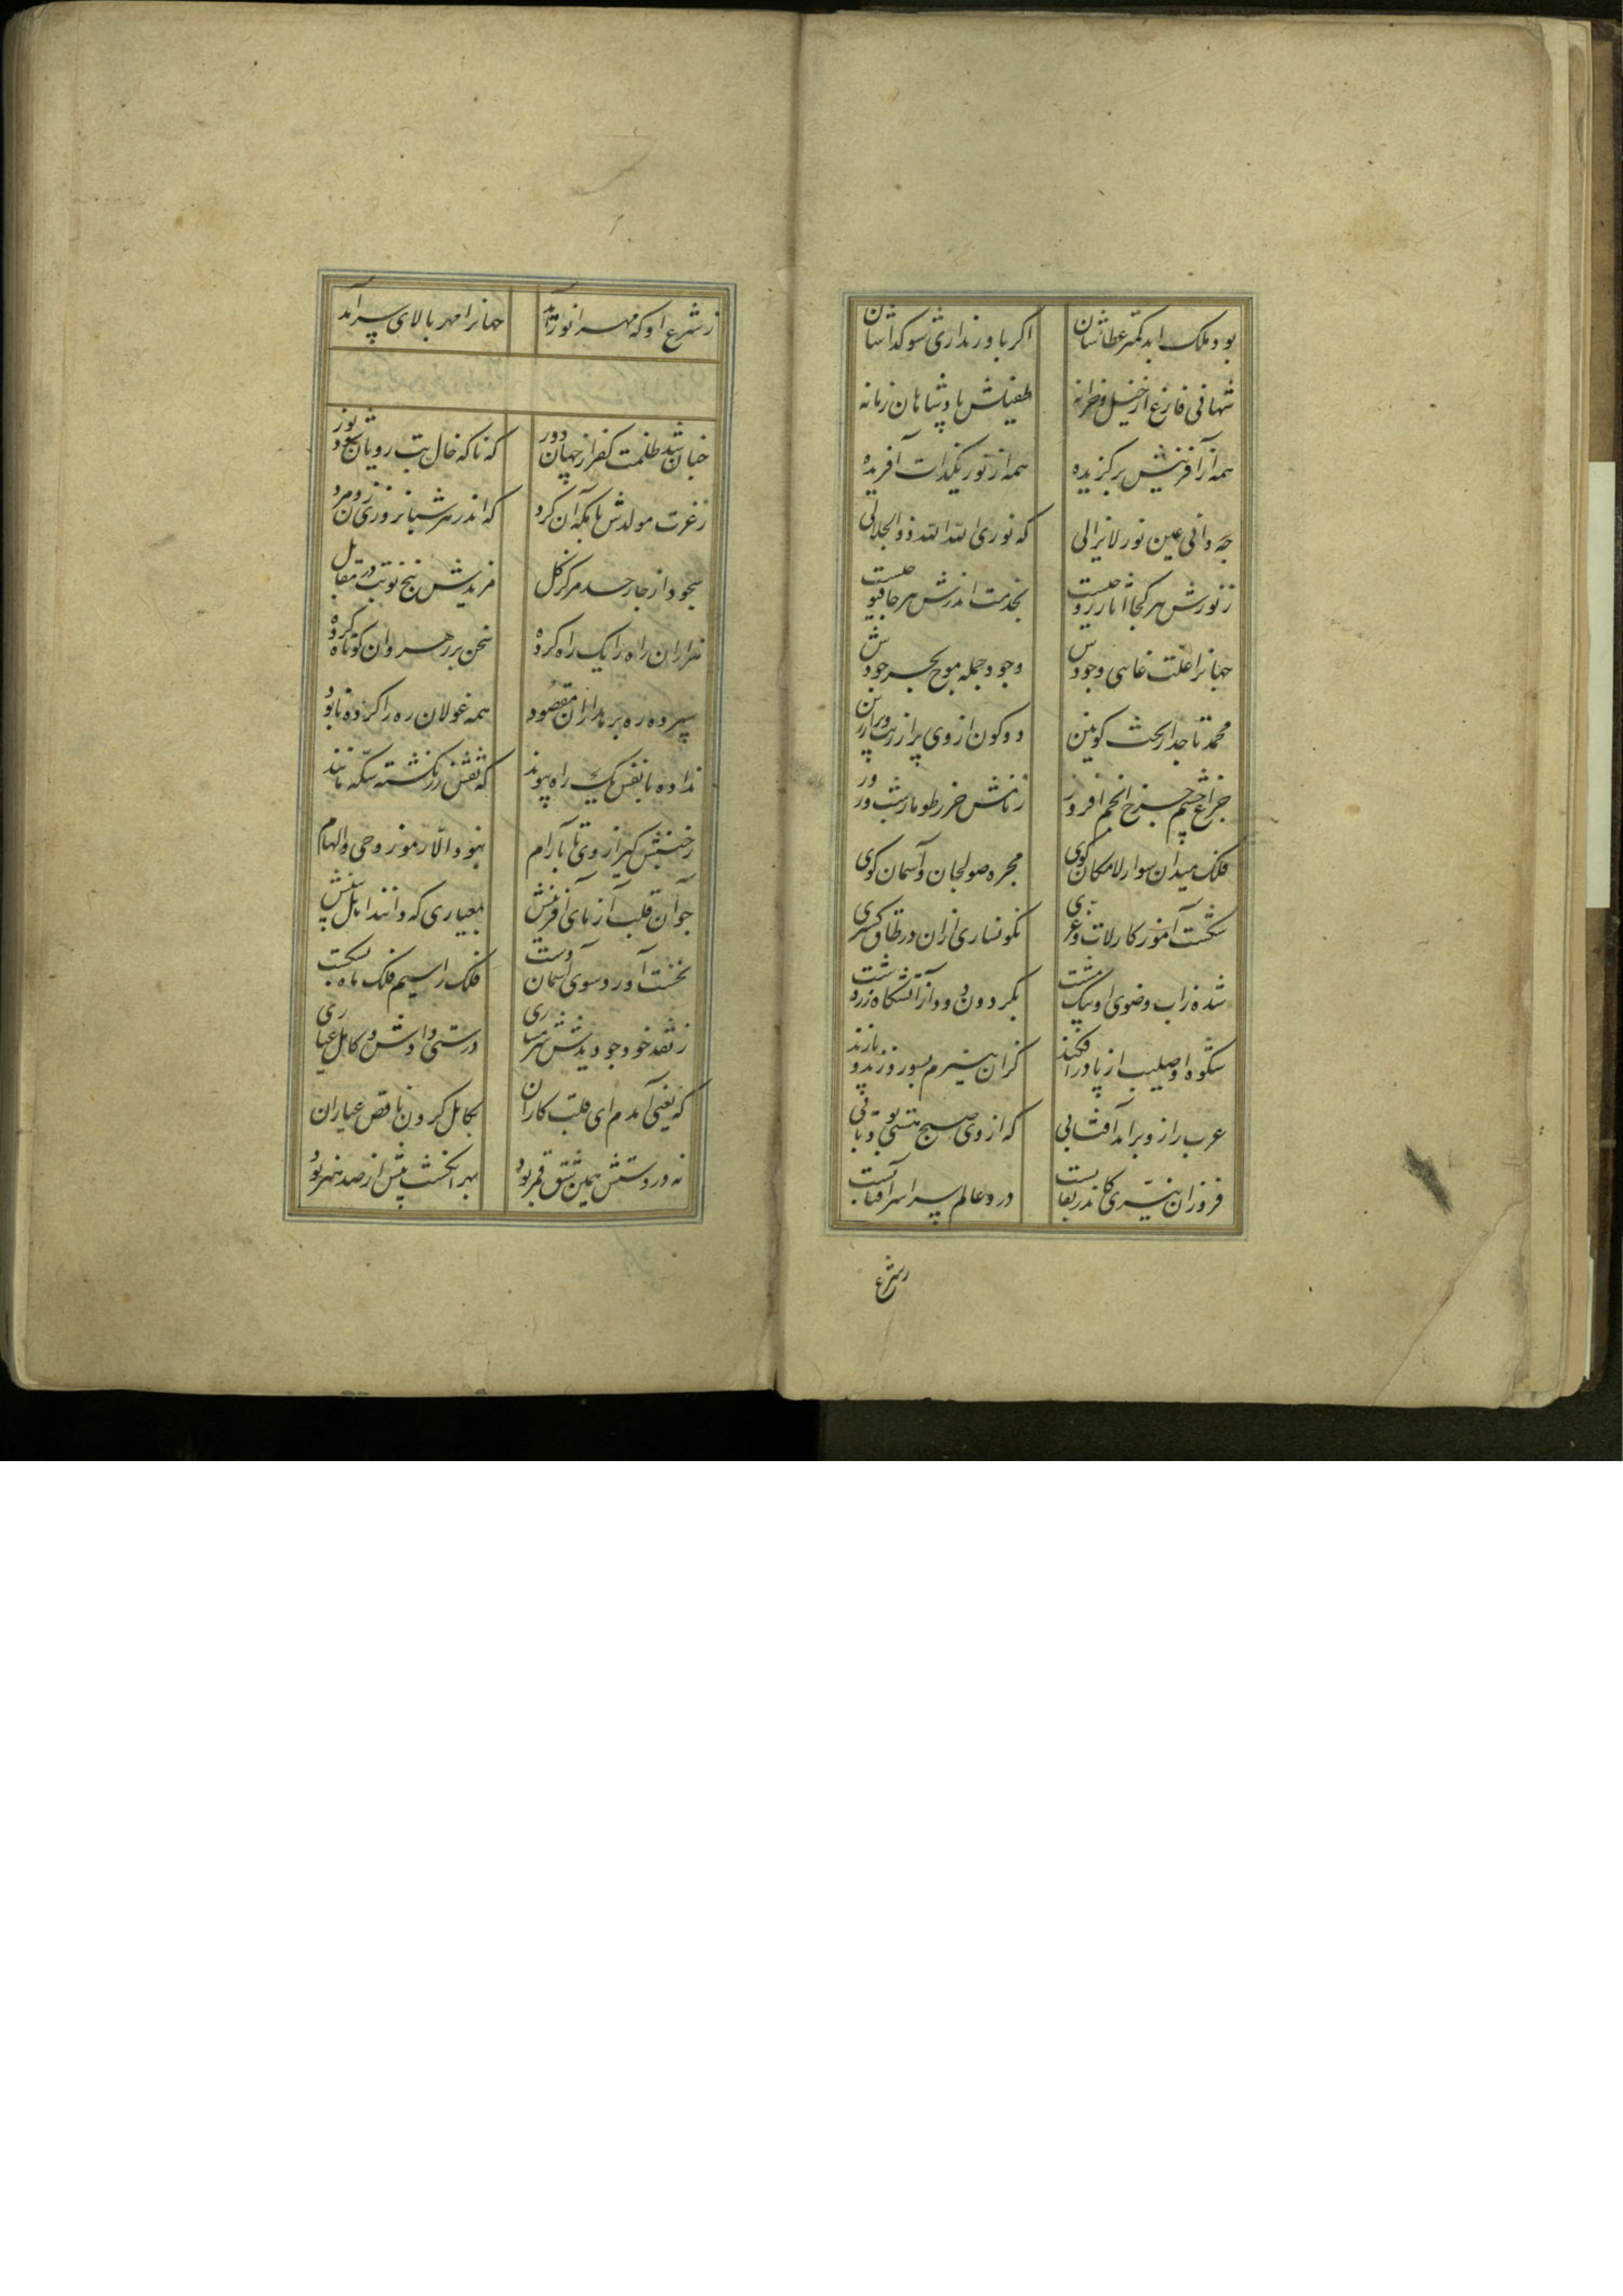 بود ملک ابد کمتر عطاشان اکر باور نداری شو کداشان
شهانی فارغ از خیل و خزانه طفیلش پادشاهان زمانه
همه از آفرینش برکزیده همه از نور یکذات آفریده
چه ذاتی عین نور لایزالی که نوری الله الله ذوالجلالی
ز نورش هر کجا آثار زوچیست بخدمت اندرش هر جا
جهانرا علت غائی وجودش وجود جمله موج بحر جودش
محمد تاجدار تخت کونین دو کون از وی پر از زیب و پر از زین
چراغ چشم چرخ انجم افروز زنانش خر طومار شب و روز
فلک میدان سوار لامکان کوی مجره صولجان و آسمان کوی
شکست آموز کار لات و عزی نکونساری ازان در طاق کسری
شده ز آب وضوی او بیک مشت بکردون دود از آتشکاه زردشت
شکوه او صلیب از پا در افکند کزان هیزم بسوزد زند و پازند
عرب را زو برآمد آفتابی که از وی صبح هستی بود تابی
فروزان نیری کاندر نقابست در دو عالم سراسر آفتابست
ز شرع
ز شرع او که مهر انور آمد جهانرا مهر بالای سر آمد
چنان شد ظلمت کفر از جهان دور که ناکه خال بت رویان شود نور
ز عزت مولدش با مکه آن کرد که اندر هر شبانروزی زن و مرد
سجود از چار حد مرکز کل مزیدش پنج نوبت در مقابل
هزاران راه را یک راه کرده سخن بر رهروان کوتاه کرده
سپرده ره بره داران مقصود همه غولان ره را کرده نابود
نداده با نفس یک راه پیوند که نقش زر نکشته سکه مانند
ز جنبش کیر از وی تا بآرام نبود الا رموز وحی و الهام
جو آن قلب آزمای آفرینش بمعیاری که دانند اهل بینش
نخست آورد سوی آسمان دست فلک را سیم قلب ماه بشکست
ز نقد خود جو دیدش شرمساری درستی دادش و کامل عیاری
که یعنی آمدم ای قلب کاران بکامل کردن ناقص عیاران
نه در دستش همین شق قمر بود بهر انکشت بیش از صد هنر بود